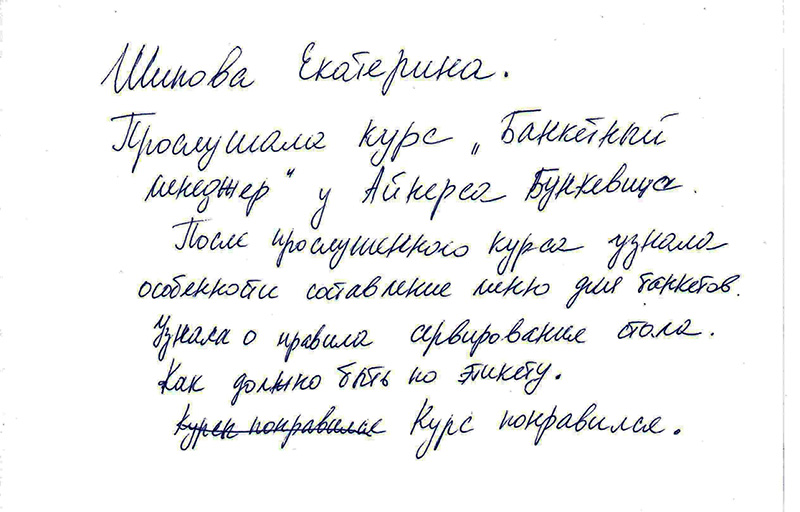 Шипова Екатерина.
Прослушала курс „Банкетный
менеджер" у Айнерса Бункевица.
После прослушенного курса узнала
особенности составление меню для банкетов.
Узнала о правила сервирование стола.
Как должно быть по этикету.
Курсы понравился Курс понравился.